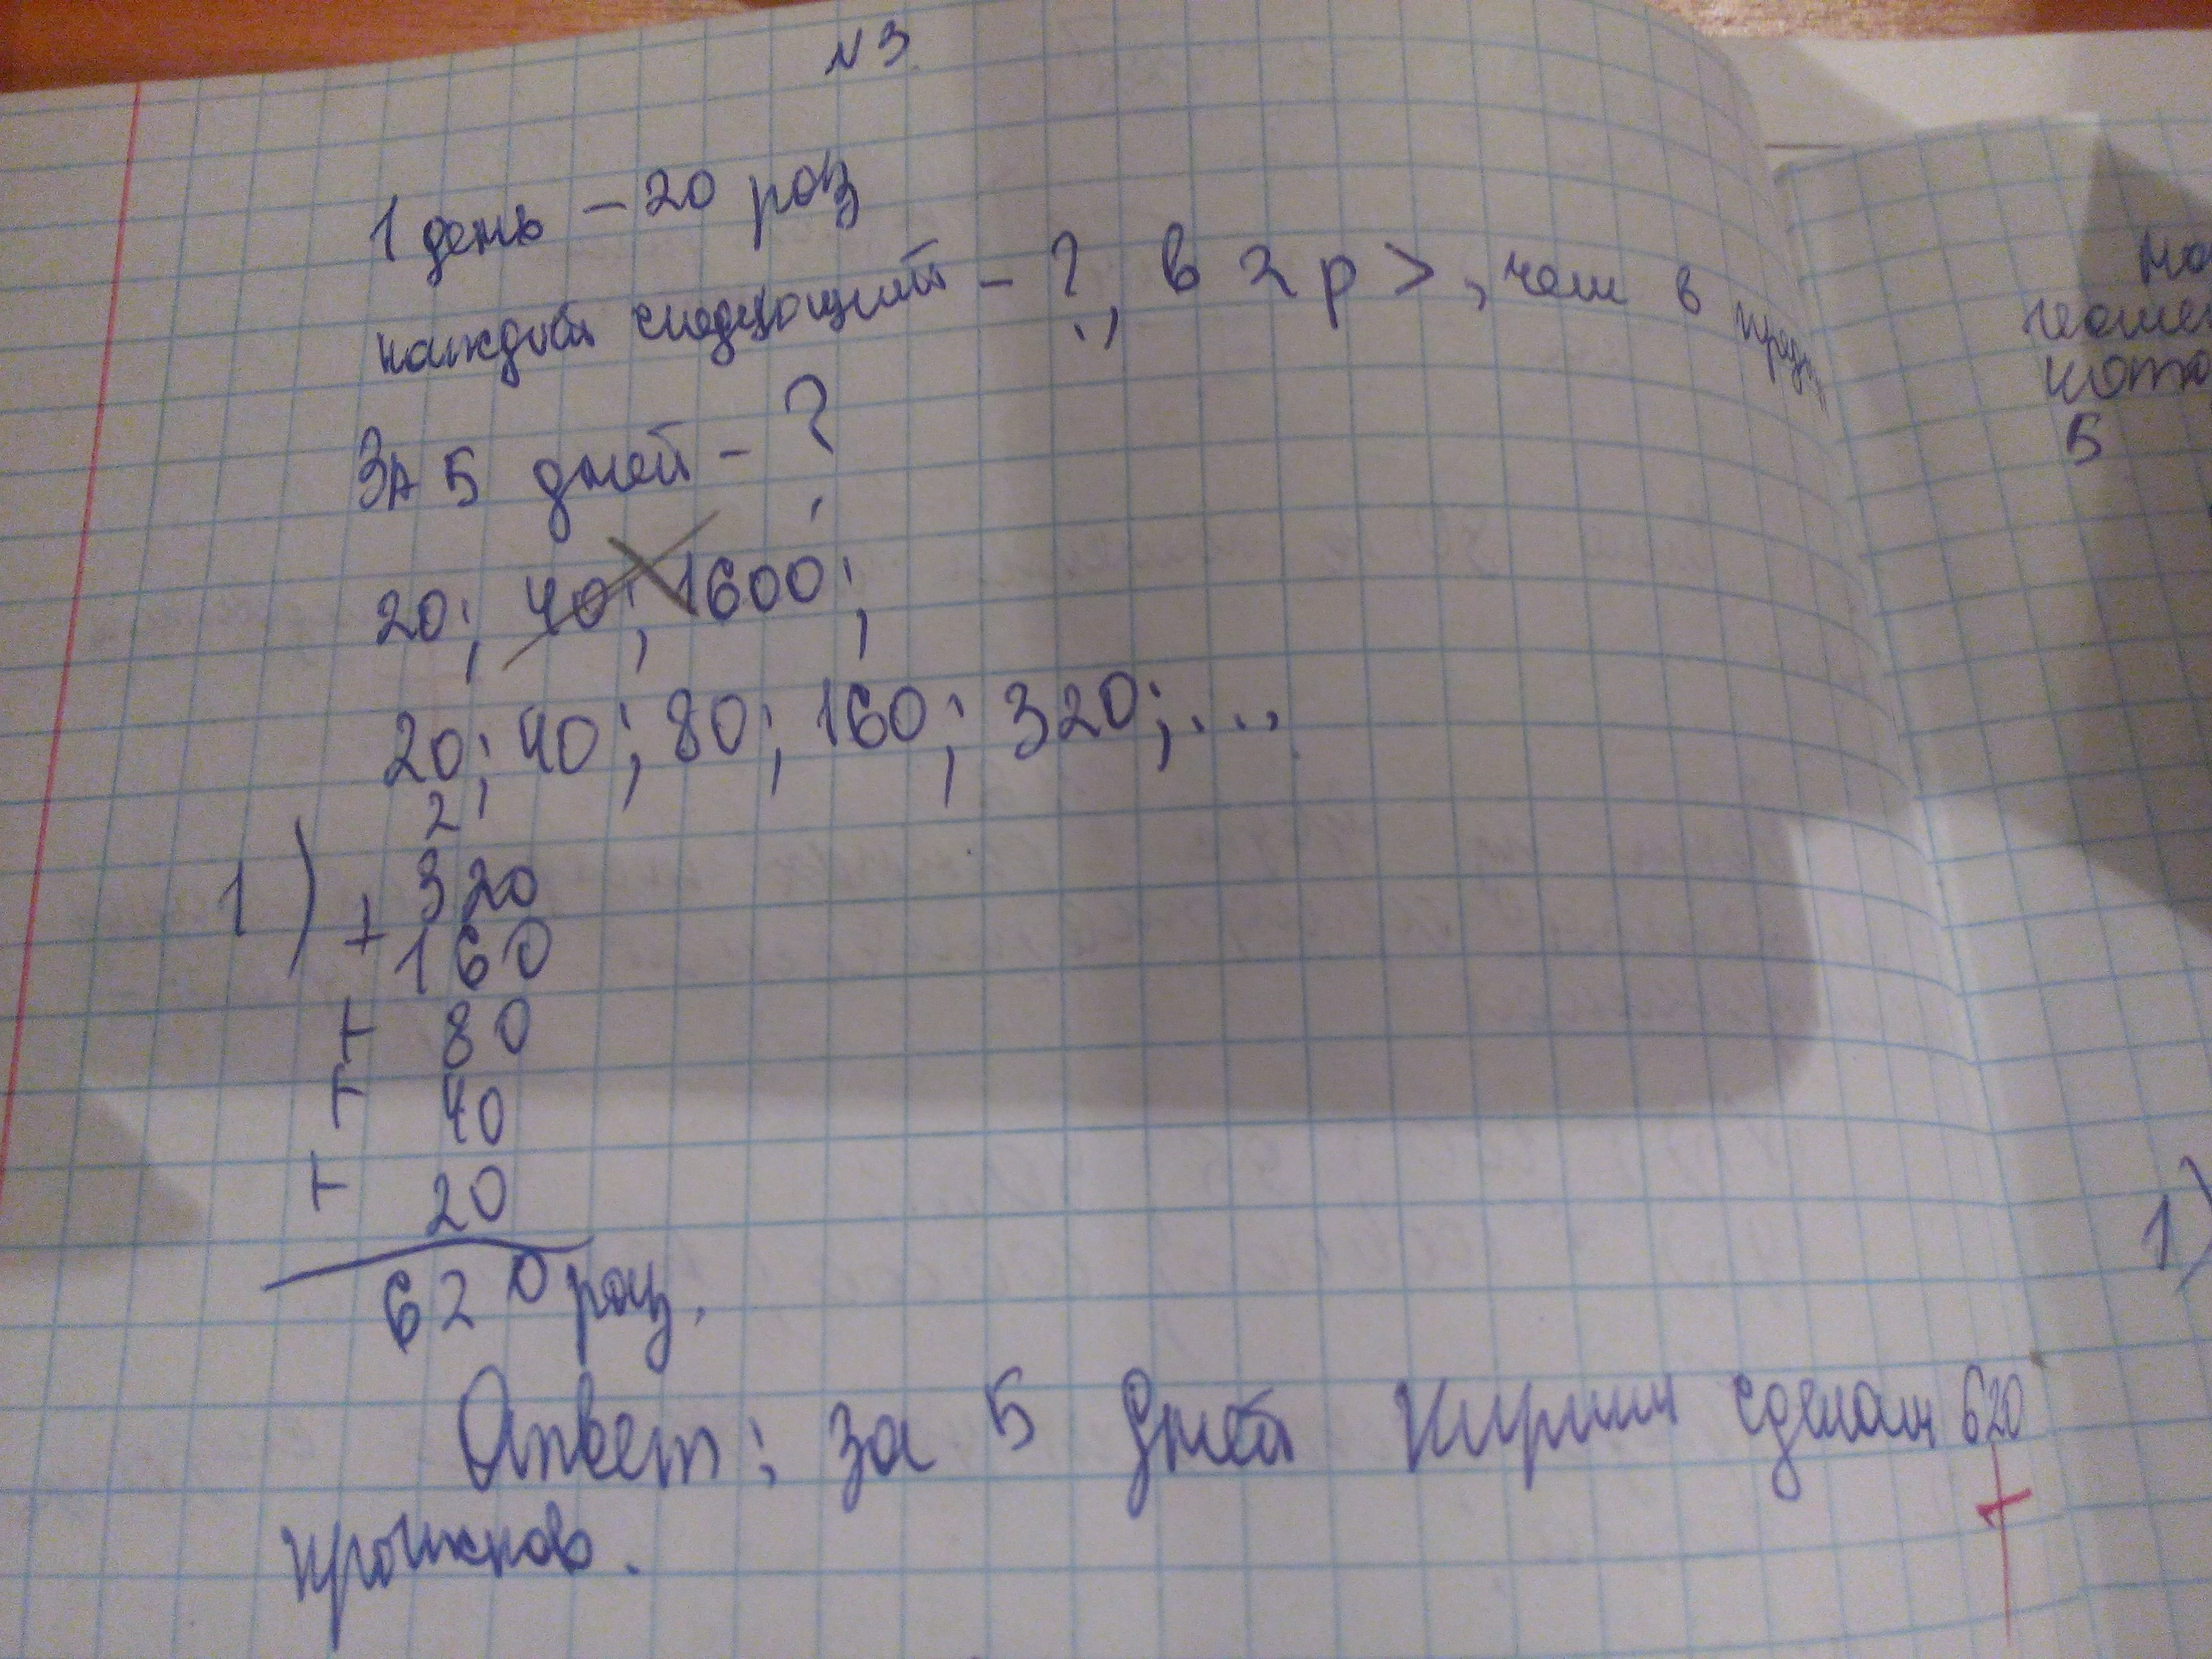 N 3
1 день - 20 раз
каждый следующий - ?, в 2 р >, чем в пред
За 5 дней - ?
20; 40; 1600;
20; 40; 80; 160; 320; ...
2
1) + 320
+ 160
+ 80
+ 40
+ 20
620 раз.
Ответ: за 5 дней Кирилл сделал 620
прыжков.
на
5
1)